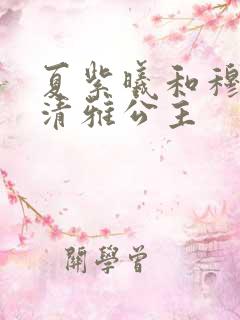 夏紫曦和穆
清雅公主
關學曾